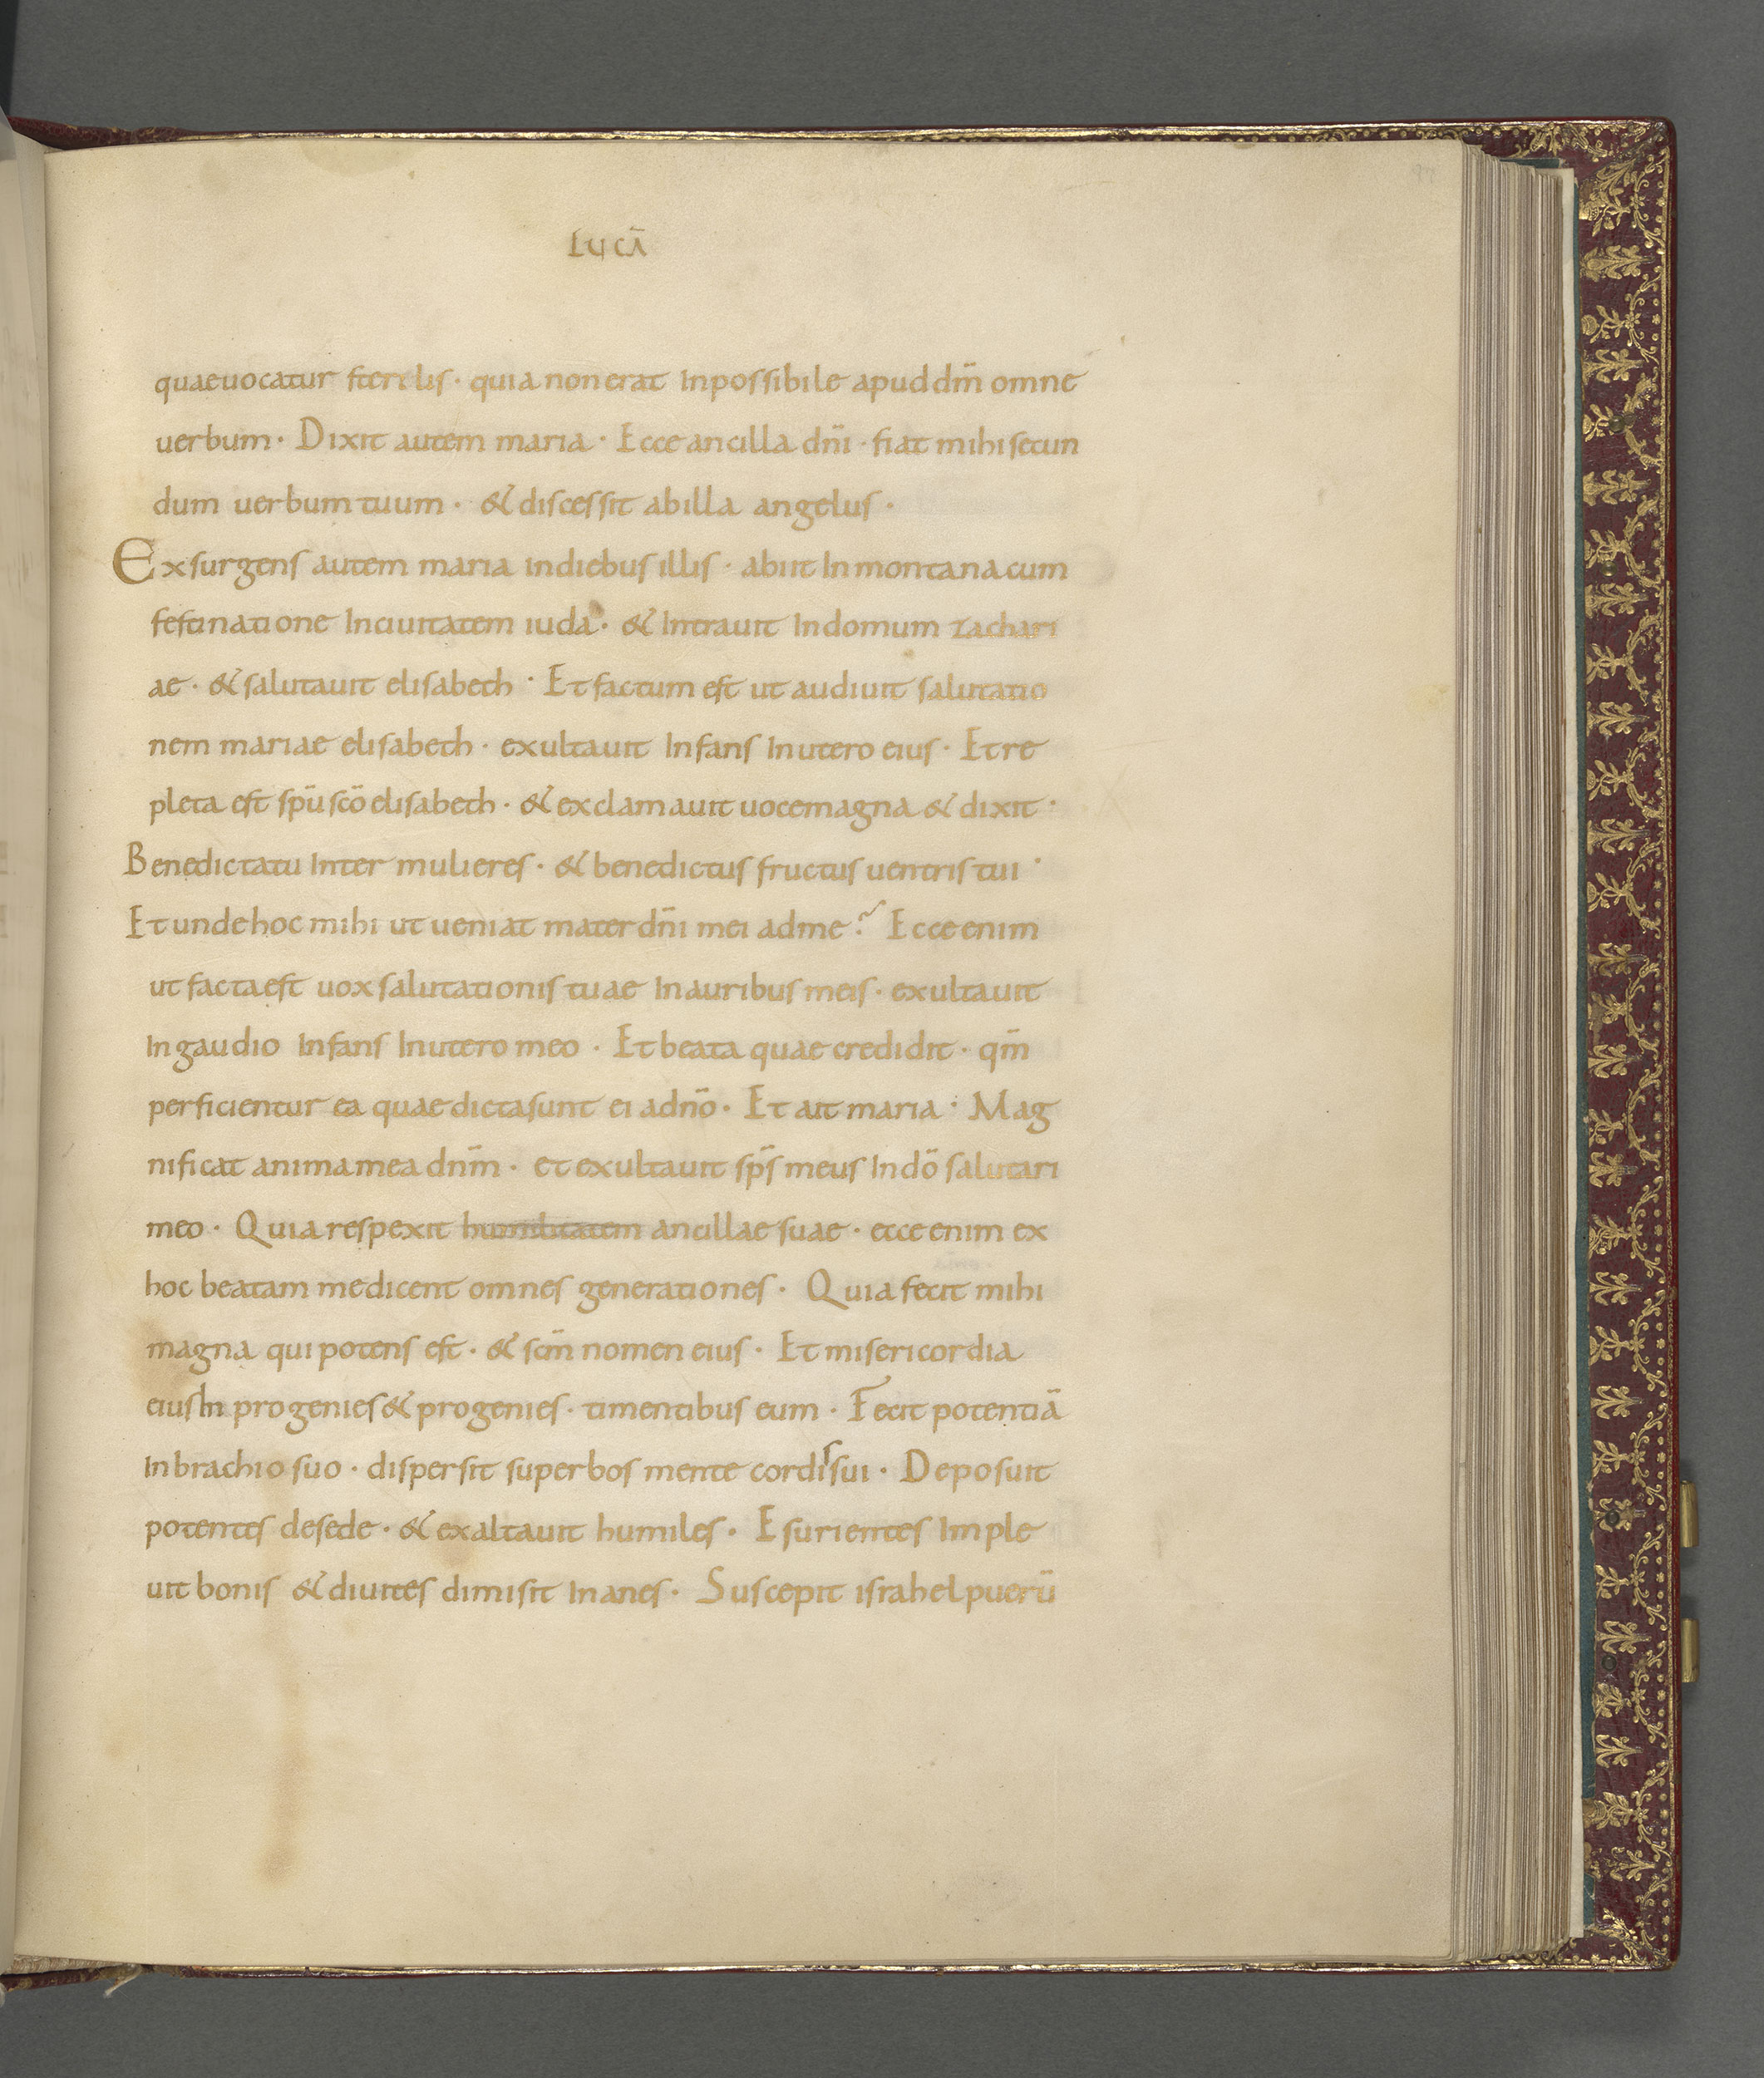 LUCĀ
quae uocatur sterelis · quia non erat inpossibile apud dm̄ omne
uerbum · Dixit autem maria · Ecce ancilla dn̄i · fiat mihi secun
dum uerbum tuum · & discessit ab illa angelus ·
Exsurgens autem maria in diebus illis · abiit in montana cum
festinatione in ciuitatem iuda · & intrauit in domum zachari
ae · & salutauit elisabeth · Et factum est ut audiuit salutatio
nem mariae elisabeth · exultauit infans in utero eius · Et re
pleta est spū scō elisabeth · & exclamauit uoce magna & dixit ·
Benedicta tu inter mulieres · & benedictus fructus uentris tui ·
Et unde hoc mihi ut ueniat mater dn̄i mei ad me? Ecce enim
ut facta est uox salutationis tuae in auribus meis · exultauit
in gaudio infans in utero meo · Et beata quae credidit · qm̄
perficientur ea quae dicta sunt ei a dn̄o · Et ait maria · Mag
nificat anima mea dnm̄ · et exultauit sps̄ meus in dō salutari
meo · Quia respexit humilitatem ancillae suae · ecce enim ex
hoc beatam me dicent omnes generationes · Quia fecit mihi
magna qui potens est · & scm̄ nomen eius · Et misericordia
eius in progenies & progenies · timentibus eum · Fecit potentiā
in brachio suo · dispersit superbos mente cordis sui · Deposuit
potentes de sede · & exaltauit humiles · Esurientes imple
uit bonis & diuites dimisit inanes · Suscepit israhel puerū